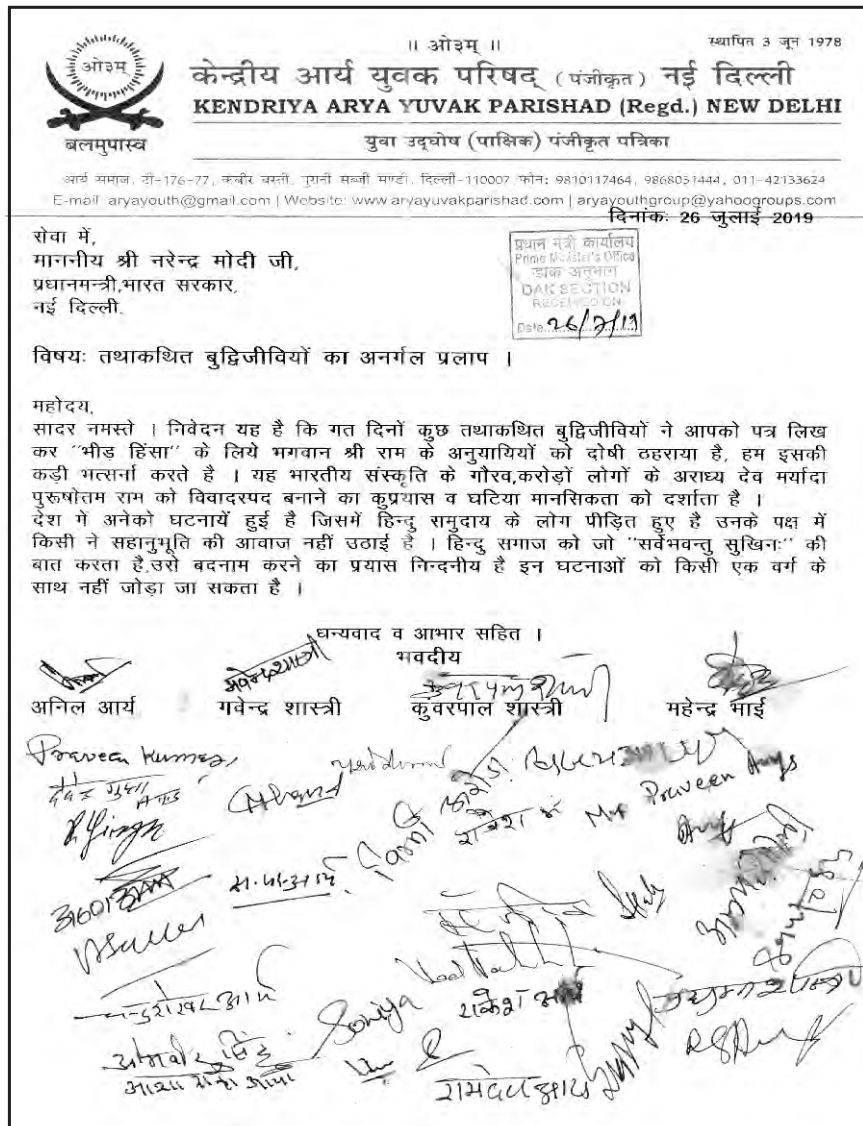 ॥ ओ३म् ॥
स्थापित 3 जून 1978
ओ३म्
बलमुपास्व
केन्द्रीय आर्य युवक परिषद् (पंजीकृत) नई दिल्ली
KENDRIYA ARYA YUVAK PARISHAD (Regd.) NEW DELHI
युवा उद्घोष (पाक्षिक) पंजीकृत पत्रिका
आर्य समाज, टी-176-77, कबीर बस्ती, पुरानी सब्जी मण्डी, दिल्ली-110007 फोन: 9810117464, 9868051444, 011-42133624
E-mail: aryayouth@gmail.com | Website: www.aryayuvakparishad.com | aryayouthgroup@yahoogroups.com
दिनांकः 26 जुलाई 2019
सेवा में,
माननीय श्री नरेन्द्र मोदी जी,
प्रधानमन्त्री,भारत सरकार,
नई दिल्ली.
प्रधान मंत्री कार्यालय
Prime Minister's Office
डाक अनुभाग
DAK SECTION
RECEIVED ON
Date 26/7/19
विषयः तथाकथित बुद्विजीवियों का अनर्गल प्रलाप ।
महोदय,
सादर नमस्ते । निवेदन यह है कि गत दिनों कुछ तथाकथित बुद्विजीवियों ने आपको पत्र लिख
कर "भीड़ हिंसा" के लिये भगवान श्री राम के अनुयायियों को दोषी ठहराया है, हम इसकी
कड़ी भत्सर्ना करते है । यह भारतीय संस्कृति के गौरव,करोड़ों लोगों के अराध्य देव मर्यादा
पुरूषोतम राम को विवादस्पद बनाने का कुप्रयास व घटिया मानसिकता को दर्शाता है ।
देश में अनेको घटनायें हुई है जिसमें हिन्दु समुदाय के लोग पीड़ित हुए है उनके पक्ष में
किसी ने सहानुभूति की आवाज नहीं उठाई है । हिन्दु समाज को जो "सर्वेभवन्तु सुखिनः" की
बात करता है,उसे बदनाम करने का प्रयास निन्दनीय है इन घटनाओं को किसी एक वर्ग के
साथ नहीं जोड़ा जा सकता है ।
धन्यवाद व आभार सहित ।
भवदीय
अनिल आर्य गवेन्द्र शास्त्री कुंवरपाल शास्त्री महेन्द्र भाई
Praveen Kumar
Praveen Arya
Soniya
राकेश आर्य
चन्द्रशेखर आर्य
रामदेव आर्य